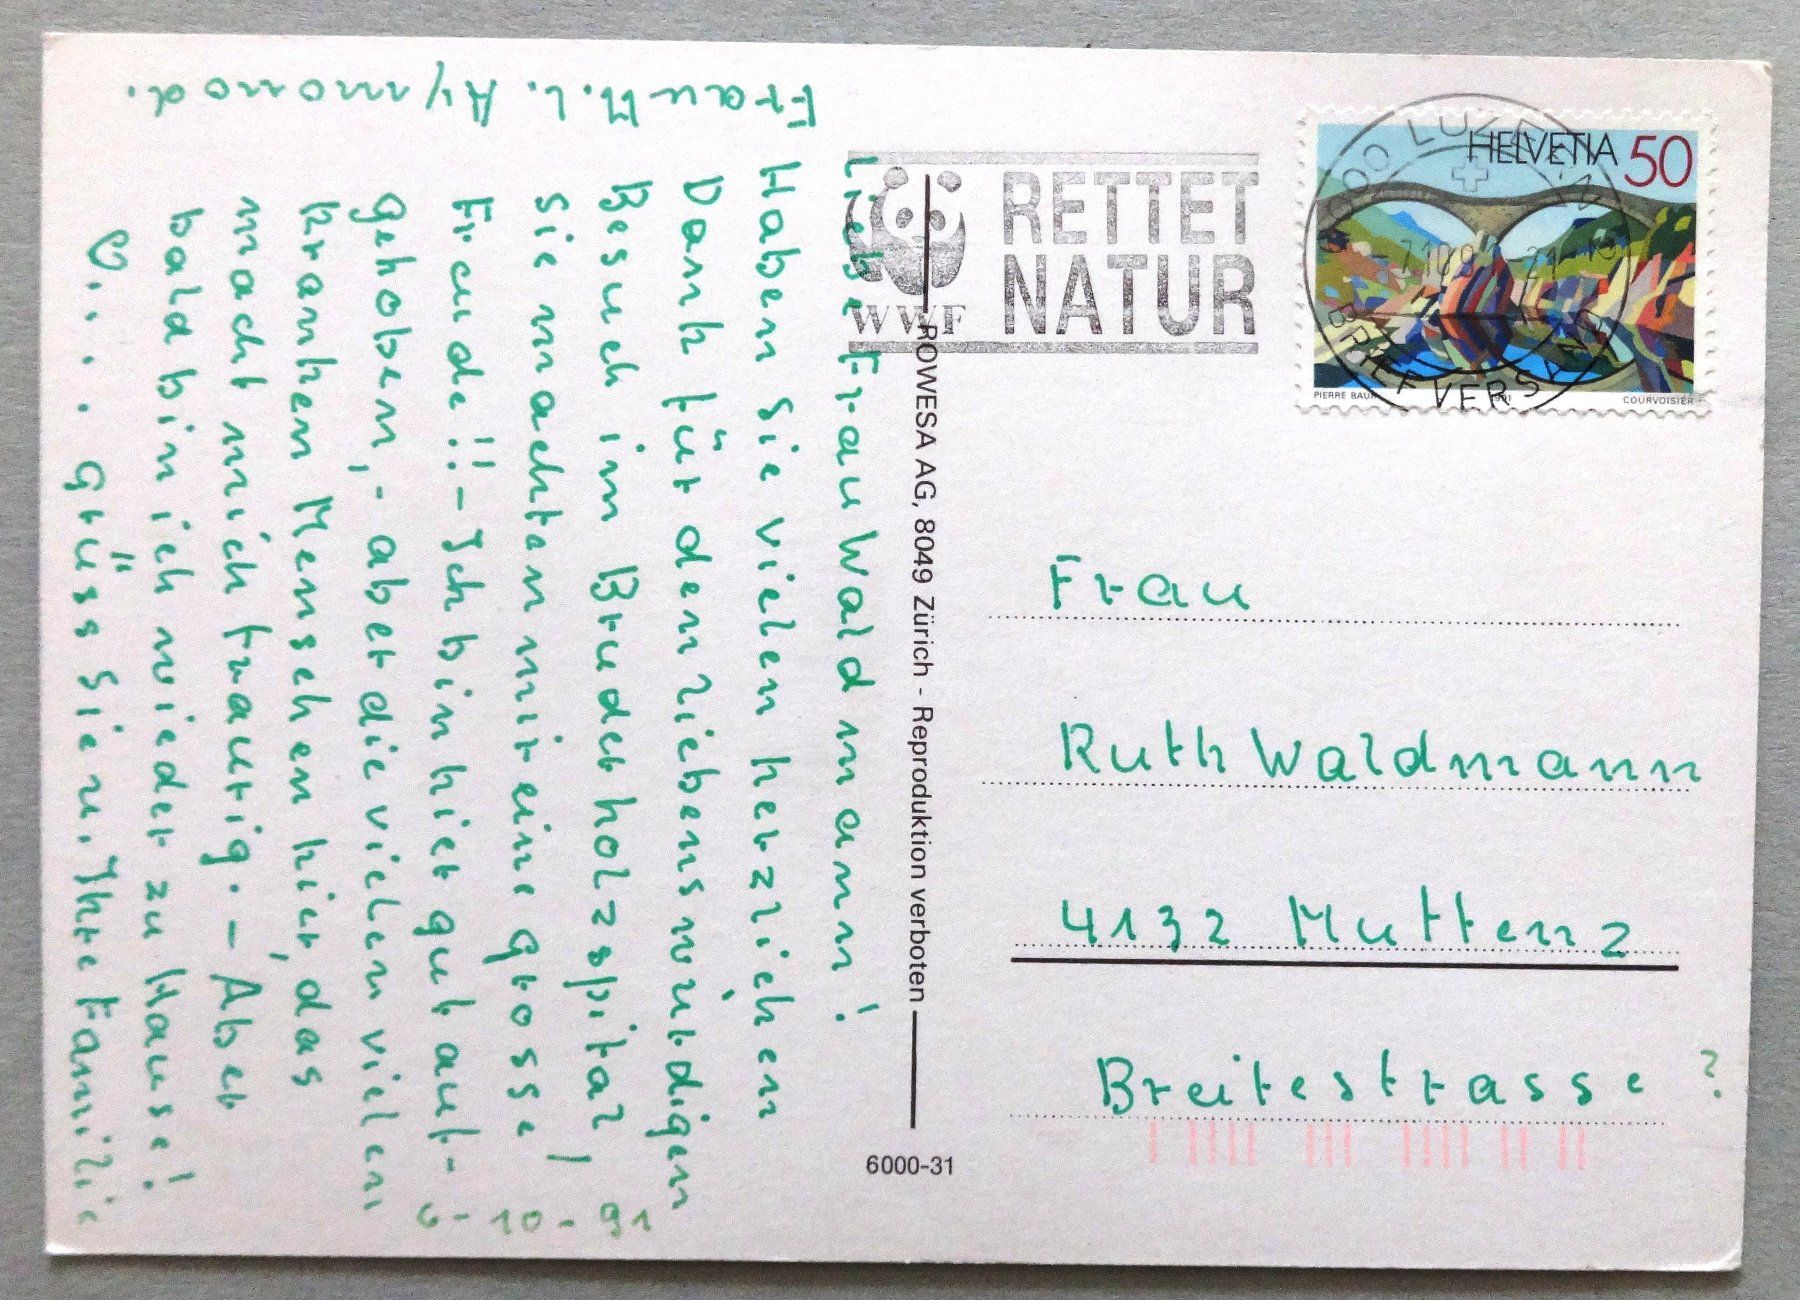 Liebe Frau Waldmann!
Haben Sie vielen herzlichen
Dank für den liebenswürdigen
Besuch im Bruderholzspital!
Sie machten mir eine grosse
Freude!! - Ich bin hier gut auf-
gehoben, - aber die vielen vielen
kranken Menschen hier, das
macht mich traurig. - Aber
bald bin ich wieder zu Hause!
Grüss Sie u. Ihre Familie
Frau M. L. Aymonod.
6-10-91
RETTET
NATUR
WWF
HELVETIA 50
PIERRE BAUR
1991
COURVOISIER
LUZERN
BRIEFVERSAND
ROWESA AG, 8049 Zürich - Reproduktion verboten
6000-31
Frau
Ruth Waldmann
4132 Muttenz
Breitestrasse ?